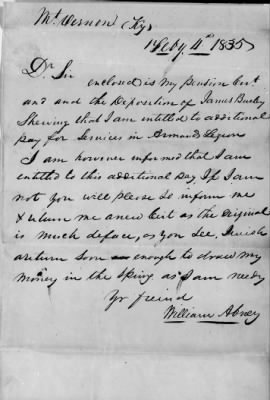 Mt Vernon (Ky)
Feby 4th 1835
Dr Sir
enclosed is my pension Cert
and and the Deposition of James
Shewing that I am entitled to additional
pay for Services in Armands Legion
I am however informed that I am
entitled to this additional pay If I am
not you will please So inform me
& return me a new Cert as the original
is much deface, as you See. I wish
a return Soon enough to draw my
money in the Spring as I am needy
Yr freind
William Abney